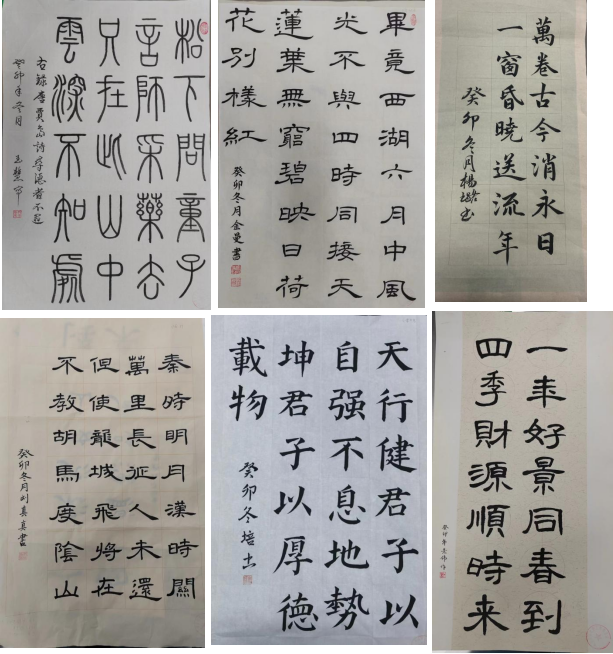 松下問童子
言師采藥去
只在此山中
雲深不知處
右錄唐賈島詩尋隱者不遇
癸卯年冬月
畢竟西湖六月中風
光不與四時同接天
蓮葉無窮碧映日荷
花別樣紅
癸卯冬月金曼書
萬卷古今消永日
一窗昏曉送流年
癸卯冬月楊
秦時明月漢時關
萬里長征人未還
但使龍城飛將在
不教胡馬度陰山
癸卯冬月劉真真書
天行健君子以
自强不息地勢
坤君子以厚德
載物
癸卯冬培
一年好景同春到
四季財源順時来